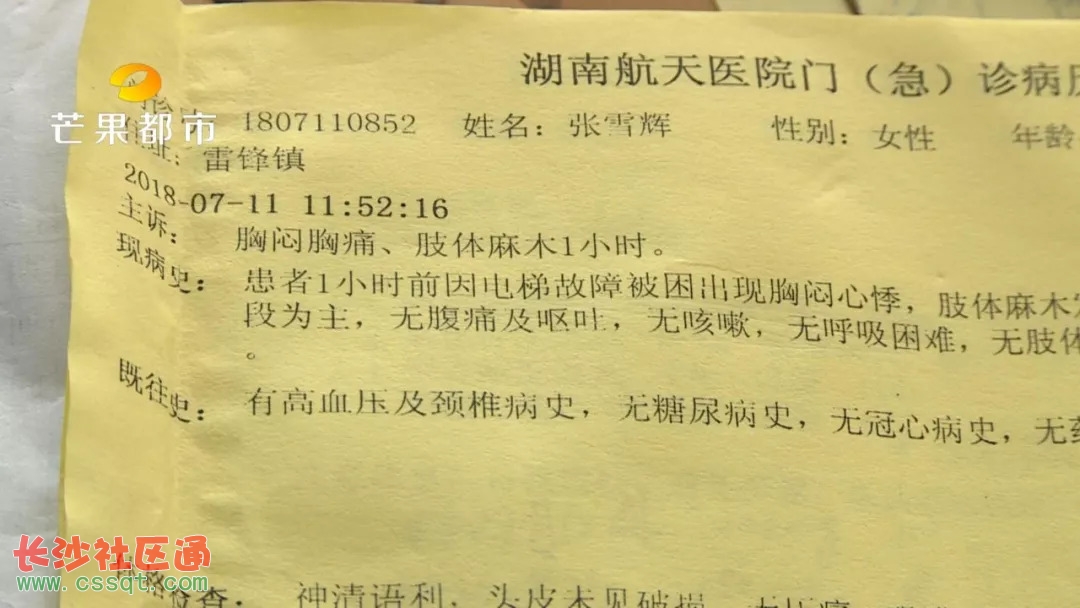 湖南航天医院门（急）诊病历
芒果都市
1807110852 姓名：张雪辉 性别：女性 年龄
住址：雷锋镇
2018-07-11 11:52:16
主诉： 胸闷胸痛、肢体麻木1小时。
现病史： 患者1小时前因电梯故障被困出现胸闷心悸，肢体麻木
段为主，无腹痛及呕吐，无咳嗽，无呼吸困难，无肢体
。
既往史： 有高血压及颈椎病史，无糖尿病史，无冠心病史，无药
长沙社区通
www.cssqt.com
查： 神清语利，头皮未见破损